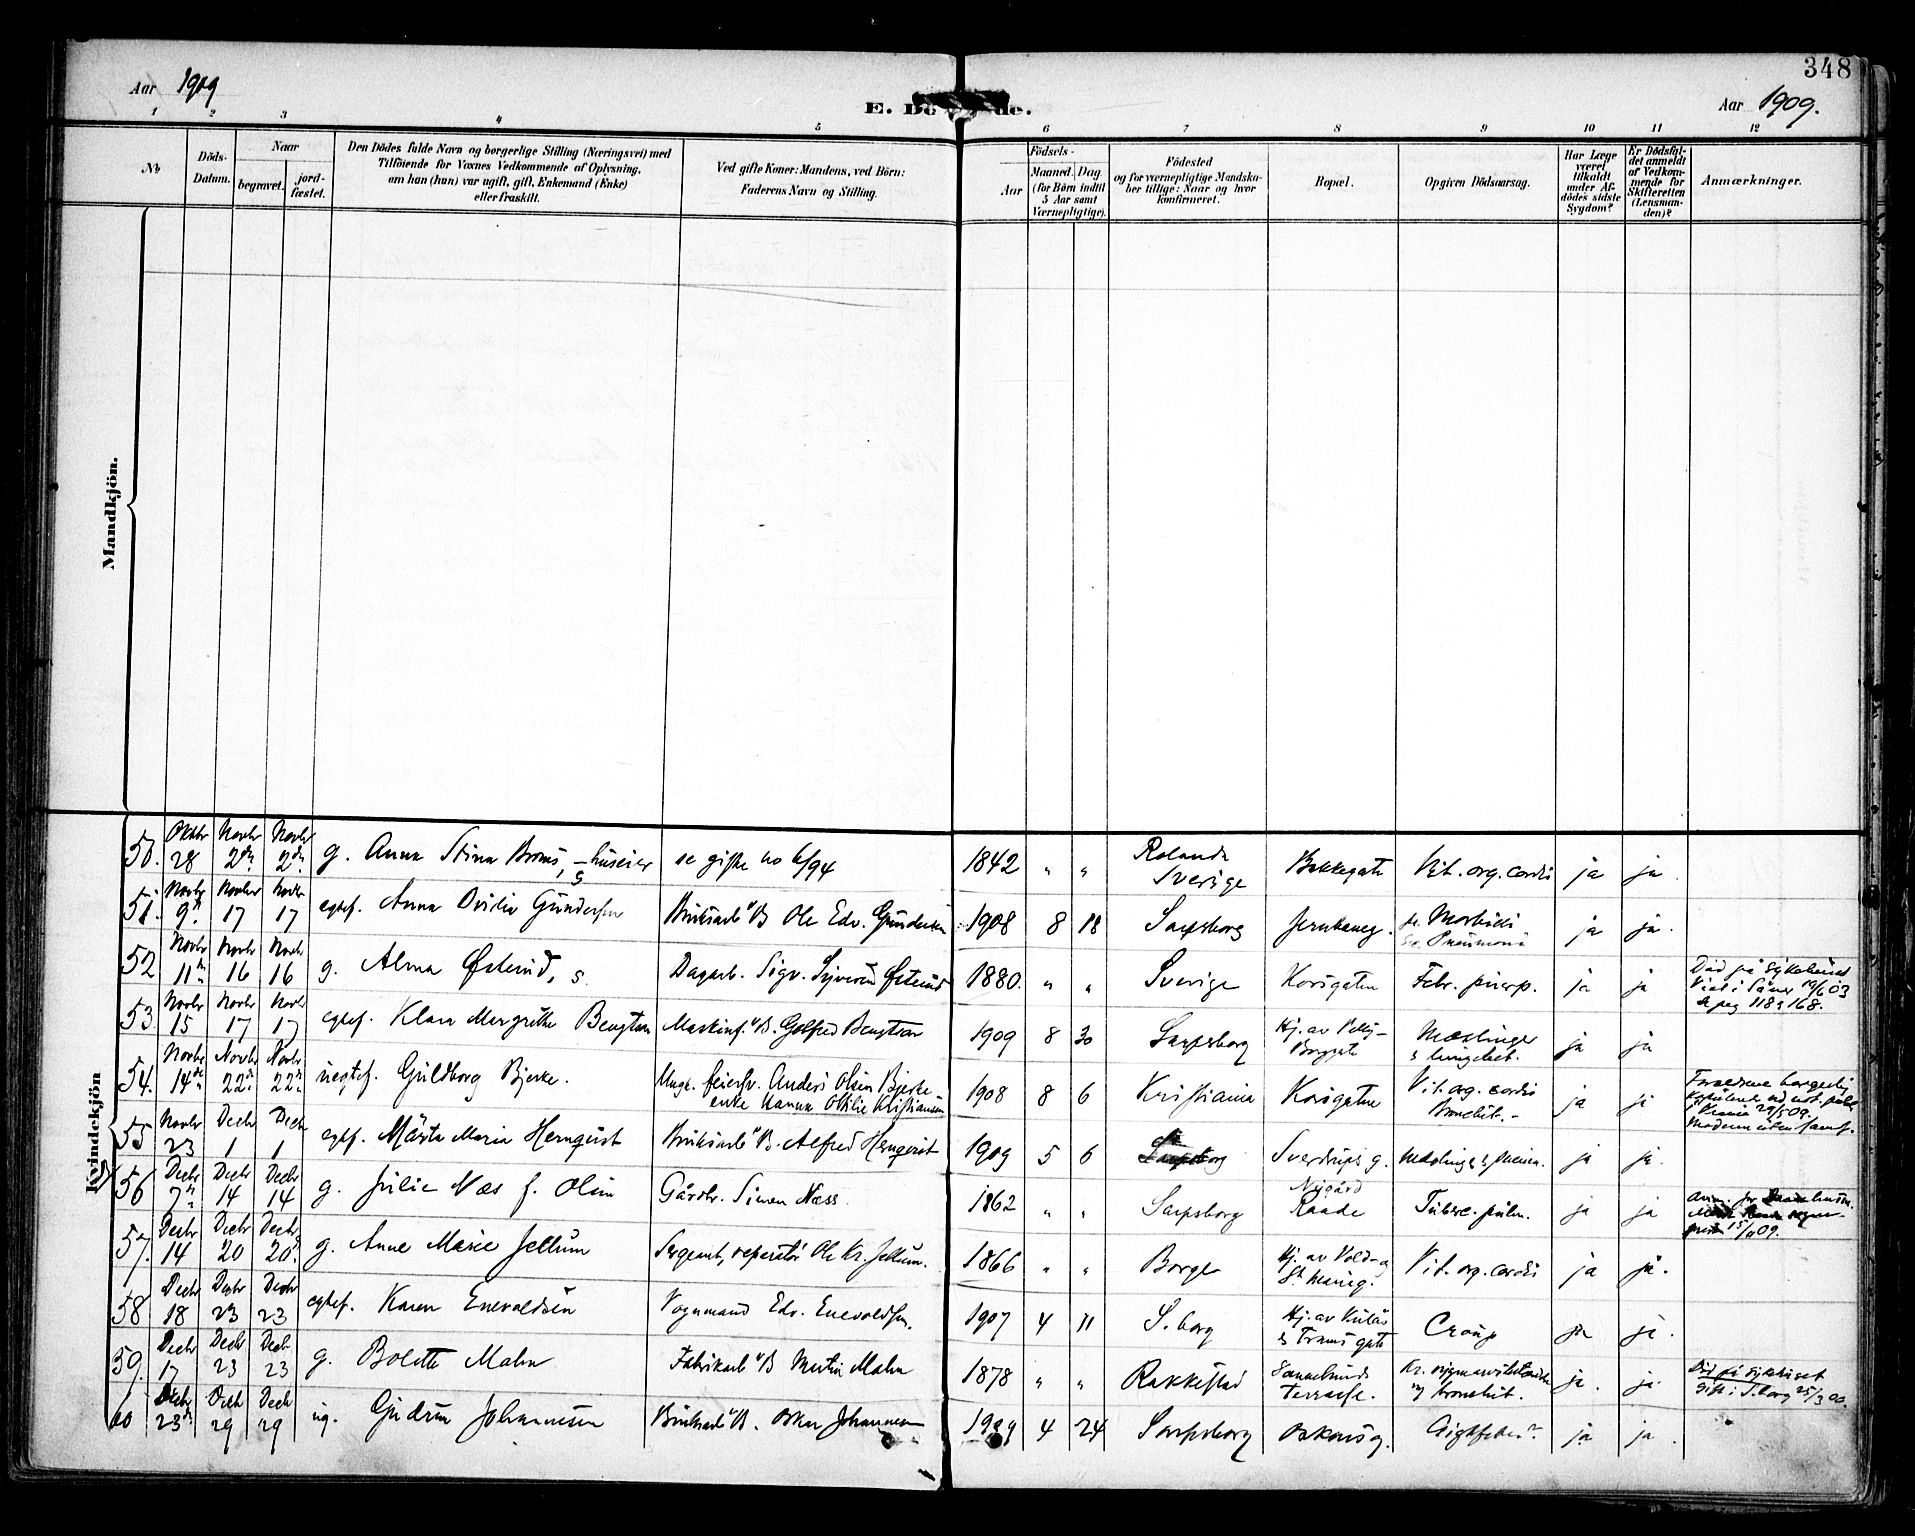 348
Aar 1909
E. Dö de.
Aar 1909.
1 2 3 4 5 6 7 8 9 10 11 12
No
Döds-
Datum.
Naar
begravet.
jord-
fæstet.
Den Dödes fulde Navn og borgerlige Stilling (Næringsvei) med
Tilföiende for Voxnes Vedkommende af Oplysning,
om han (hun) var ugift, gift, Enkemand (Enke)
eller fraskilt.
Ved gifte Koner: Mandens, ved Börn:
Faderens Navn og Stilling.
Födsels-
Aar
Maaned.
Dag
(for Börn indtil
5 Aar samt
Værnepligtige).
Födested
og for værnepligtige Mandska-
ber tillige: Naar og hvor
konfirmeret.
Bopæl.
Opgiven Dödsaarsag.
Har Læge
været
tilkaldt
under Af-
dödes sidste
Sygdom?
Er Dödsfal-
det anmeldt
af Vedkom-
mende for
Skifteretten
(Lensman-
den)?
Anmærkninger.
Mandkjön.
Kvindekjön
50. Oktbr 28 Novbr 2den Novbr 2den g. Anna Stina Broms, huseier se gifte no 6/94 1842 " " Rolanda Sverige Bekkegate Vit. org. cordis ja ja
51. Novbr 9de Novbr 17 Novbr 17 egtef. Anna Ovidie Gundersen Bruksarb. Ole Edv. Gundersen 1908 8 18 Sarpsborg Jernbaneg. Morbilli Pneumoni ja ja.
52 Novbr 11te Novbr 16 Novbr 16 g. Alma Østerud, s. Dagarb. Sigv. Syverin Østerud 1880. " " Sverige Korsgaten Febr. puerp. ja ja Död på Sykehuset Viet i Såner 19/6 03 pag 118 168.
53 Novbr 15 Novbr 17 Novbr 17 egtef. Klara Margrethe Bengtson Maskinf. Golfred Bengtson 1909 8 30 Sarpsborg Hj. av Borggate Mæslinger & lungebet. ja ja
54. Novbr 14de Novbr 22de Novbr 22de uegtef. Guldborg Bjerke. Ungk. feiersv. Anders Olsen Bjerke enke Hanna Othilie Kristiansen 1908 8 6 Kristiania Korsgatne Vit. org. cordis Bronchit. - ja ja Forældrene borgerlig
55 Novbr 23 Decbr 1 Decbr 1 egtef. Märta Maria Hernquist Bruksarb. Alfred Hernqvist 1909 5 6 Sarpsborg Sverdrups g. Mæslinger & pneum. ja ja.
56 Decbr 7de Decbr 14 Decbr 14 g. Julie Næs f. Olsen Gårdbr. Simen Næss. 1862 " " Sarpsborg Nygård Raade Tuberc. pulm. ja ja 09.
57. Decbr 14 Decbr 20 Decbr 20. g. Anne Marie Jellum Sergeant, reperatör Ole Kr. Jellum. 1866 " " Borge Hj. av Vold- og St. Marieg. Vit. org. cordis ja ja.
58 Decbr 18 Decbr 23 Decbr 23 egtef. Karen Enevoldsen Vognmand Edv. Enevoldsen. 1907 4 11 S.borg Hj. av Kulås & Trømsgate Croup ja ja.
59. Decbr 17 Decbr 23 Decbr 23 g. Bolette Malm Fabrikarb. Martin Malm 1878 " " Rakkestad Sannelunds Terrasse. og bronchit. ja. ja Död på sykehuset gift i S.borg 25/3 00.
60 Decbr 23de Decbr 29 Decbr 29 ug. Gudrun Johannesen Bruksarb. Oskar Johannesen 1909 4 24 Sarpsborg Oskarsg. Gigtfeber ja ja.